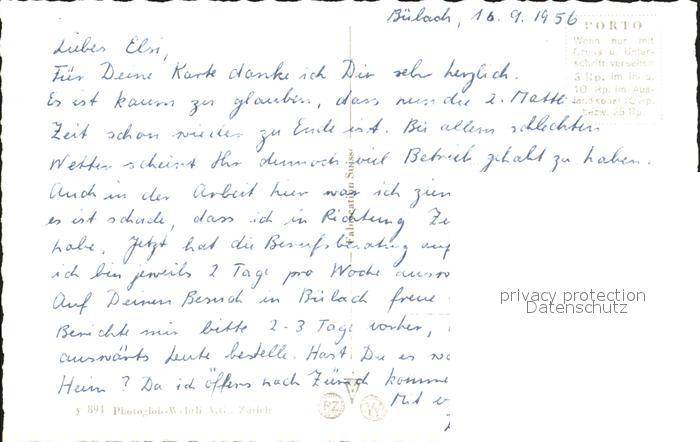 Bülach, 16. 9. 1956
PORTO
Wenn nur mit
Gruss u. Unter-
schrift versehen
5 Rp. im In- u.
10 Rp. im Aus-
Liebes Elsi,
Für Deine Karte danke ich Dir sehr herzlich.
Es ist kaum zu glauben, dass nun die 2. Matte
Zeit schon wieder zu Ende ist. Bei allem schlechten
Wetter scheint Ihr dennoch viel Betrieb gehabt zu haben.
Auch in der Arbeit hier war ich zien
es ist schade, dass ich in Richtung Zü
habe. Jetzt hat die Berufsberatung auf
ich bin jeweils 2 Tage pro Woche ausw
Auf Deinen Besuch in Bülach freue
Berichte mir bitte 2-3 Tage vorher,
auswärts Leute bestelle. Hast Du es
Heim? Da ich öfters nach Zürich komme
Mit
Fabrication Suisse
y 894 Photoglob-Wehrli A.G., Zürich
PZ
W
privacy protection
Datenschutz